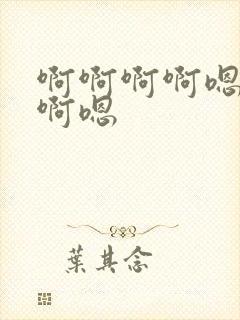 啊啊啊啊嗯
啊嗯
葉其念